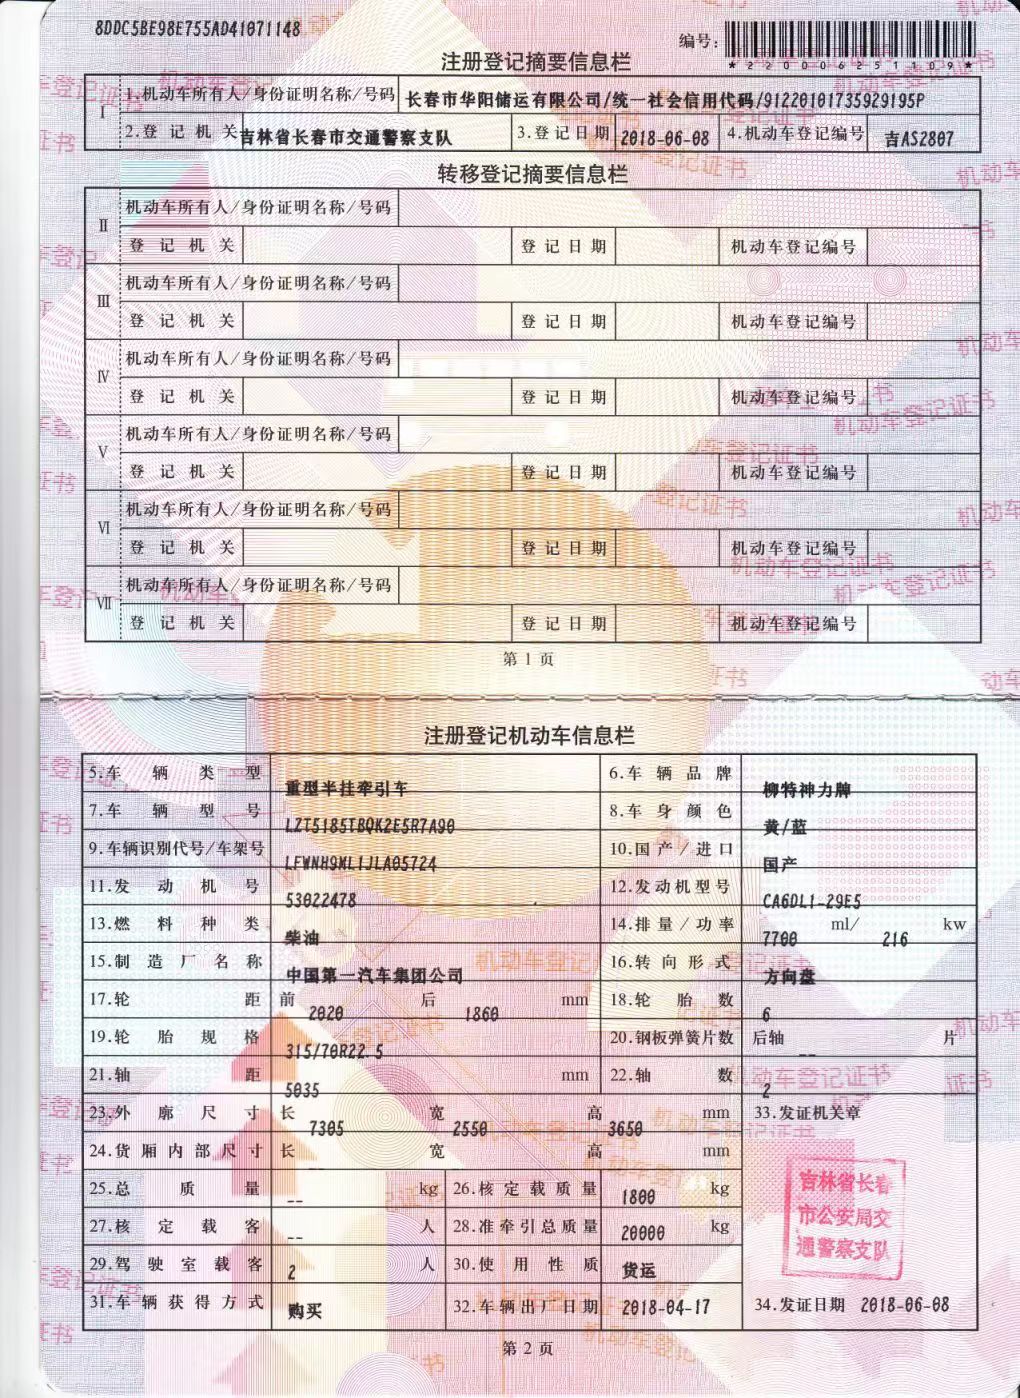 8DDC5BE98E755AD41071148
编号:
*220006251109*
注册登记摘要信息栏
I
1.机动车所有人/身份证明名称/号码 长春市华阳储运有限公司/统一社会信用代码/91220101735929195P
2.登记机关 吉林省长春市交通警察支队 3.登记日期 2018-06-08 4.机动车登记编号 吉AS2807
转移登记摘要信息栏
II
机动车所有人/身份证明名称/号码
登记机关 登记日期 机动车登记编号
III
机动车所有人/身份证明名称/号码
登记机关 登记日期 机动车登记编号
IV
机动车所有人/身份证明名称/号码
登记机关 登记日期 机动车登记编号
V
机动车所有人/身份证明名称/号码
登记机关 登记日期 机动车登记编号
VI
机动车所有人/身份证明名称/号码
登记机关 登记日期 机动车登记编号
VII
机动车所有人/身份证明名称/号码
登记机关 登记日期 机动车登记编号
第1页
注册登记机动车信息栏
5.车辆类型 重型半挂牵引车 6.车辆品牌 柳特神力牌
7.车辆型号 LZT5185TBQK2E5R7A90 8.车身颜色 黄/蓝
9.车辆识别代号/车架号 LFWNH9ML1JLA05724 10.国产/进口 国产
11.发动机号 53022478 12.发动机型号 CA6DL1-29E5
13.燃料种类 柴油 14.排量/功率 7700 ml/ 216 kw
15.制造厂名称 中国第一汽车集团公司 16.转向形式 方向盘
17.轮距 前 2020 后 1860 mm 18.轮胎数 6
19.轮胎规格 315/70R22.5 20.钢板弹簧片数 后轴 -- 片
21.轴距 5035 mm 22.轴数 2
23.外廓尺寸 长 7305 宽 2550 高 3650 mm 33.发证机关章
24.货厢内部尺寸 长 -- 宽 -- 高 -- mm
25.总质量 -- kg 26.核定载质量 1800 kg
27.核定载客 -- 人 28.准牵引总质量 20000 kg
29.驾驶室载客 2 人 30.使用性质 货运
31.车辆获得方式 购买 32.车辆出厂日期 2018-04-17 34.发证日期 2018-06-08
吉林省长春
市公安局交
通警察支队
第2页